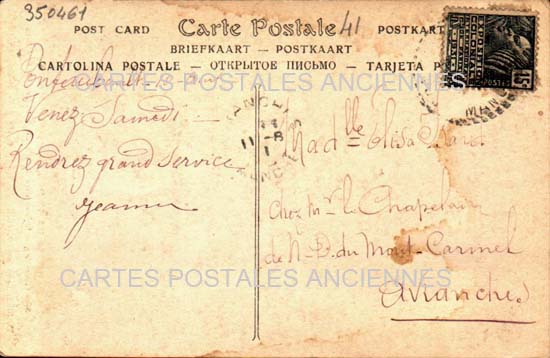 350461
41
POST CARD Carte Postale POSTKART
BRIEFKAART — POSTKAART
CARTOLINA POSTALE — ОТКРЫТОЕ ПИСЬМО — TARJETA PO
CARTES POSTALES ANCIENNES
Venez Samedi
Rendrez grand service
Jeanne
Madlle Elisa
chez Mr le Chapelain
de N-D. du Mont-Carmel
Avranches
CARTES POSTALES ANCIENNES
POSTES
15